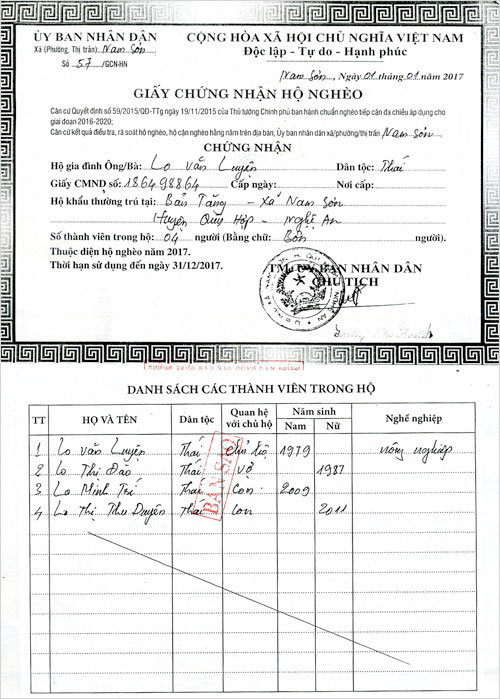 ỦY BAN NHÂN DÂN
Xã (Phường, Thị trấn): Nam Sơn
Số 57 /GCN-HN
CỘNG HÒA XÃ HỘI CHỦ NGHĨA VIỆT NAM
Độc lập - Tự do - Hạnh phúc
Nam Sơn, Ngày 01 tháng 01 năm 2017
GIẤY CHỨNG NHẬN HỘ NGHÈO
Căn cứ Quyết định số 59/2015/QĐ-TTg ngày 19/11/2015 của Thủ tướng Chính phủ ban hành chuẩn nghèo tiếp cận đa chiều áp dụng cho
giai đoạn 2016-2020;
Căn cứ kết quả điều tra, rà soát hộ nghèo, hộ cận nghèo hằng năm trên địa bàn, Ủy ban nhân dân xã/phường/thị trấn Nam Sơn
CHỨNG NHẬN
Hộ gia đình Ông/Bà: Lo Văn Luyện Dân tộc: Thái
Giấy CMND số: 186498864 Cấp ngày: Nơi cấp:
Hộ khẩu thường trú tại: Bản Tăng - Xã Nam Sơn
Huyện Quỳ Hợp - Nghệ An
Số thành viên trong hộ: 04 người (Bằng chữ: Bốn người).
Thuộc diện hộ nghèo năm 2017.
Thời hạn sử dụng đến ngày 31/12/2017.
TM. ỦY BAN NHÂN DÂN
CHỦ TỊCH
DANH SÁCH CÁC THÀNH VIÊN TRONG HỘ
TT HỌ VÀ TÊN Dân tộc Quan hệ với chủ hộ Năm sinh Nam Nữ Nghề nghiệp
1 Lo Văn Luyện Thái chủ hộ 1979 nông nghiệp
2 Lo Thị Đào Thái vợ 1987
3 Lo Minh Trí Thái con 2009
4 Lo Thị Thu Duyên Thái con 2011
BẢN SAO